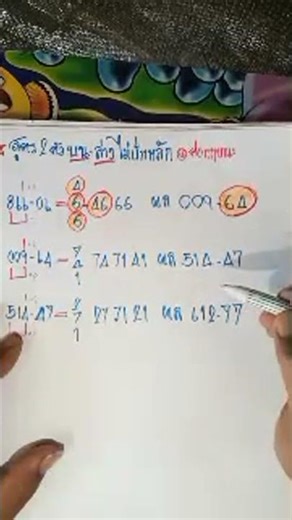 สูตร 2 ตัว บน-ล่าง ไม่ปักหลัก
4
866-06 = 6 - 46 66 ผล 009-64
6
7
009-64 = 4 74 71 41 ผล 514-47
1
2
514-47 = 7 27 21 21 ผล 612-77
1